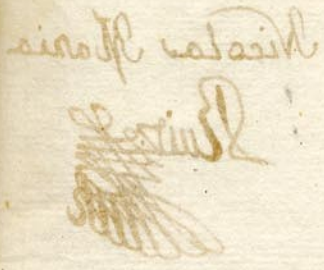 Nicolas Maria
Ruiz